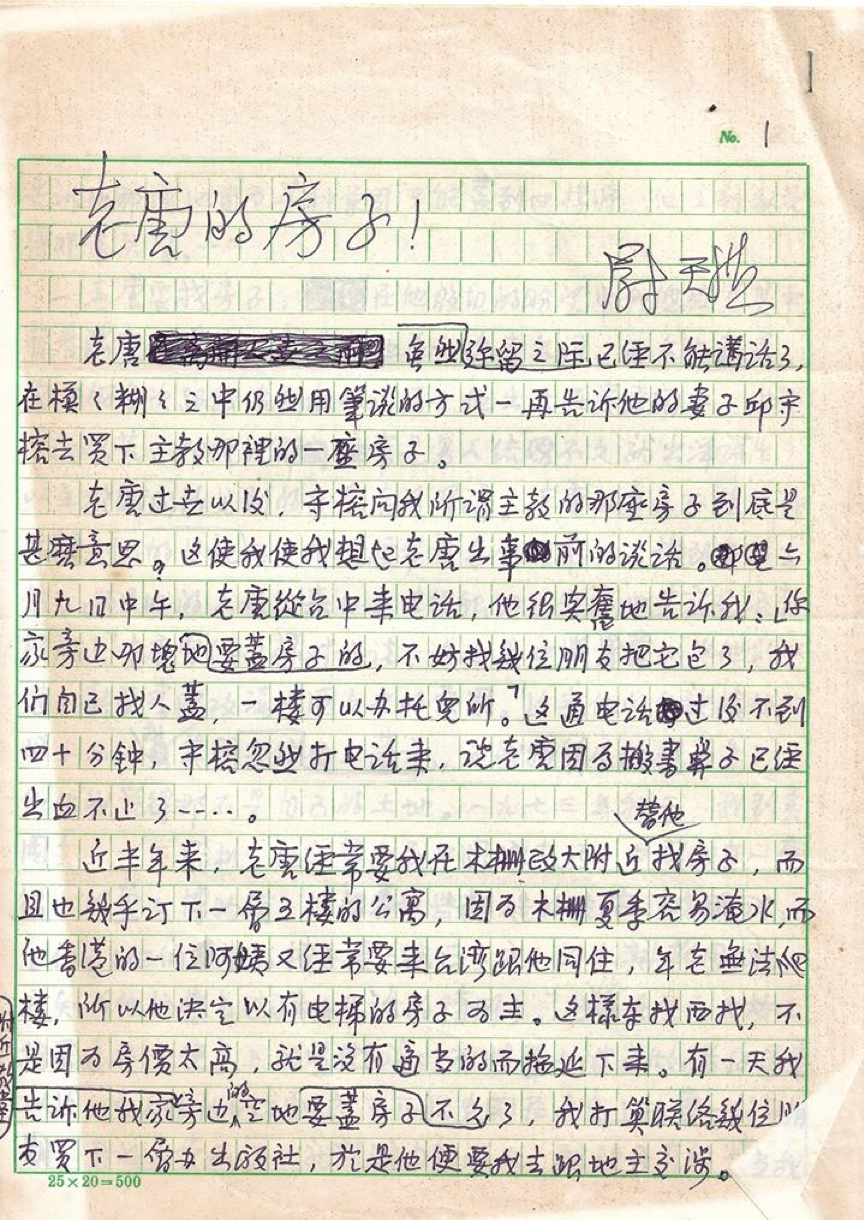 No. 1
老唐的房子!
尉天驄
老唐 虽然弥留之际已经不能講话了,
在模模糊糊之中仍然用筆談的方式一再告诉他的妻子邱守
榕去買下主教那裡的一座房子。
老唐过去以後,守榕问我所谓主教的那座房子到底是
甚麼意思。这使我使我想起老唐出事前的谈话。那是六
月九日中午,老唐從台中来电话,他很兴奮地告诉我:「你
家旁边那塊地要蓋房子的,不妨找幾位朋友把它包了,我
们自己找人蓋,一楼可以办托兒所。」这通电话过後不到
四十分钟,守榕忽然打电话来,说老唐因为搬書鼻子已经
出血不止了……。
替他
近半年来,老唐经常要我在木栅政大附近找房子,而
且也幾乎订下一層五楼的公寓,因为木栅夏季容易淹水,而
他香港的一位阿姨又经常要来台湾跟他同住,年老無法爬
楼,所以他决定以有电梯的房子为主。这樣东找西找,不
是因为房價太高,就是没有適当的而拖延下来。有一天我
告诉他我家旁边的空地要蓋房子不久了,我打算联络幾位朋
友買下一層办出版社,於是他便要我去跟地主交涉。
25×20=500